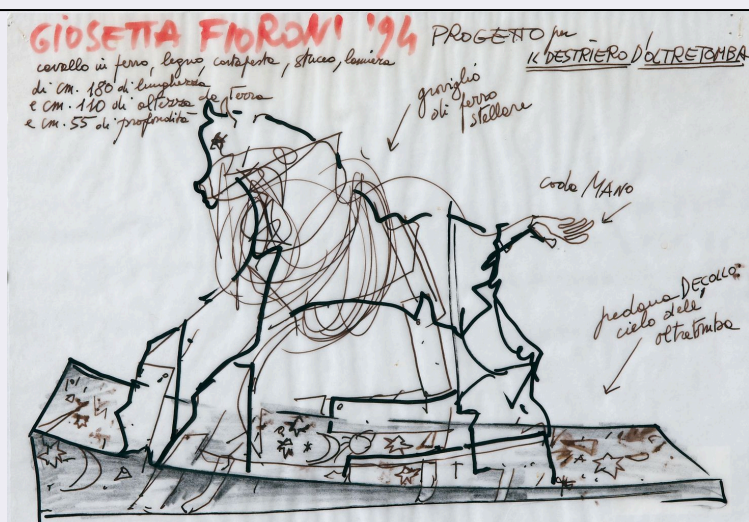 GIOSETTA FIORONI '94
PROGETTO per
IL DESTRIERO D'OLTRETOMBA
cavallo in ferro, legno, cartapesta, stucco, lamiera
di cm. 180 di lunghezza
e cm. 110 di altezza da terra
e cm. 55 di profondità
groviglio
di ferro
stellare
coda MANO
pedana DECOLLO:
cielo dell'
oltretomba